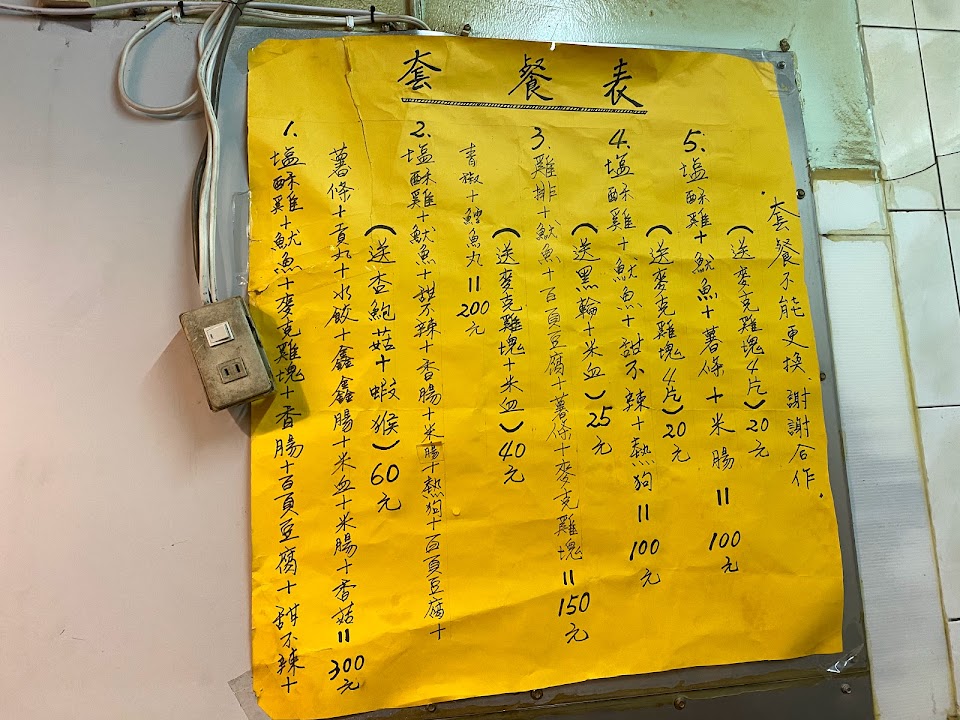 套餐表
1. 塩酥雞+魷魚+麥克雞塊+香腸+百頁豆腐+甜不辣+
薯條+貢丸+水餃+鑫鑫腸+米血+米腸+香菇=300元
(送杏鮑菇+蝦猴)60元
2. 塩酥雞+魷魚+甜不辣+香腸+米腸+熱狗+百頁豆腐+
青椒+鱈魚丸=200元
(送麥克雞塊+米血)40元
3. 雞排+魷魚+百頁豆腐+薯條+麥克雞塊=150元
(送黑輪+米血)25元
4. 塩酥雞+魷魚+甜不辣+熱狗=100元
(送麥克雞塊4片)20元
5. 塩酥雞+魷魚+薯條+米腸=100元
(送麥克雞塊4片)20元
·套餐不能更換.謝謝合作.